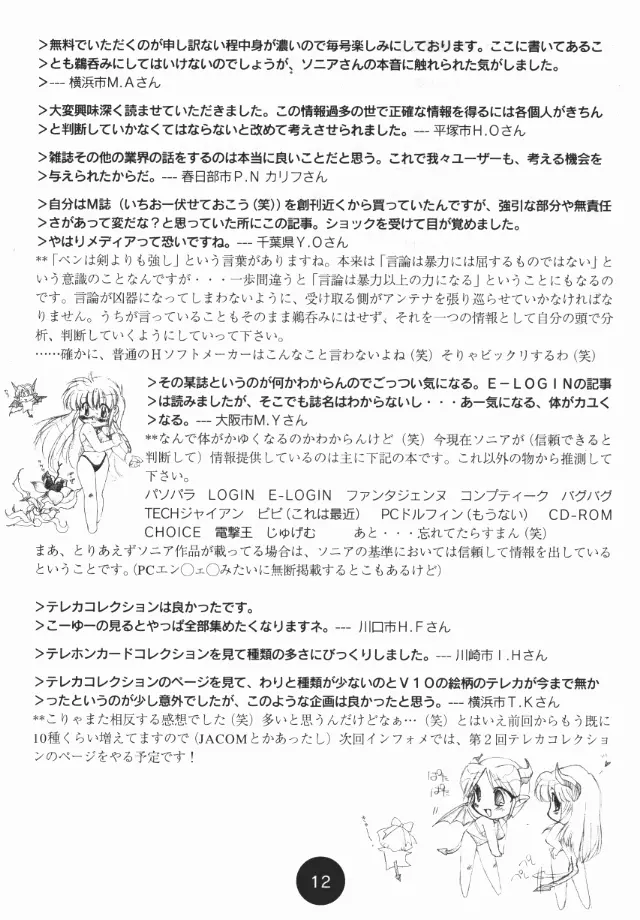 ＞無料でいただくのが申し訳ない程中身が濃いので毎号楽しみにしております。ここに書いてあるこ
＞とも鵜呑みにしてはいけないのでしょうが、ソニアさんの本音に触れられた気がしました。
＞--- 横浜市Ｍ.Ａさん
＞大変興味深く読ませていただきました。この情報過多の世で正確な情報を得るには各個人がきちん
＞と判断していかなくてはならないと改めて考えさせられました。--- 平塚市Ｈ.Ｏさん
＞雑誌その他の業界の話をするのは本当に良いことだと思う。これで我々ユーザーも、考える機会を
＞与えられたからだ。--- 春日部市Ｐ.Ｎ カリフさん
＞自分はＭ誌（いちおー伏せておこう（笑））を創刊近くから買っていたんですが、強引な部分や無責任
＞さがあって変だな？と思っていた所にこの記事。ショックを受けて目が覚めました。
＞やはりメディアって恐いですね。--- 千葉県Ｙ.Ｏさん
**「ペンは剣よりも強し」という言葉がありますね。本来は「言論は暴力には屈するものではない」と
いう意識のことなんですが・・・一歩間違うと「言論は暴力以上の力になる」ということにもなるの
です。言論が凶器になってしまわないように、受け取る側がアンテナを張り巡らせていかなければな
りません。うちが言っていることもそのまま鵜呑みにはせず、それを一つの情報として自分の頭で分
析、判断していくようにしていって下さい。
……確かに、普通のＨソフトメーカーはこんなこと言わないよね（笑）そりゃビックリするわ（笑）
＞その某誌というのが何かわからんのでごっつい気になる。Ｅ－ＬＯＧＩＮの記事
＞は読みましたが、そこでも誌名はわからないし・・・あー気になる、体がカユく
＞なる。--- 大阪市Ｍ.Ｙさん
**なんで体がかゆくなるのかわからんけど（笑）今現在ソニアが（信頼できると
判断して）情報提供しているのは主に下記の本です。これ以外の物から推測して
下さい。
パソパラ　LOGIN　E-LOGIN　ファンタジェンヌ　コンプティーク　バグバグ
TECHジャイアン　ビビ（これは最近）　PCドルフィン（もうない）　CD-ROM
CHOICE　電撃王　じゅげむ　　あと・・・忘れてたらすまん（笑）
まあ、とりあえずソニア作品が載ってる場合は、ソニアの基準においては信頼して情報を出している
ということです。（PCエン◯ェ◯みたいに無断掲載するとこもあるけど）
＞テレカコレクションは良かったです。
＞こーゆーの見るとやっぱ全部集めたくなりますネ。--- 川口市Ｈ.Ｆさん
＞テレホンカードコレクションを見て種類の多さにびっくりしました。--- 川崎市Ｉ.Ｈさん
＞テレカコレクションのページを見て、わりと種類が少ないのとＶ１０の絵柄のテレカが今まで無か
＞ったというのが少し意外でしたが、このような企画は良かったと思う。--- 横浜市Ｔ.Ｋさん
**こりゃまた相反する感想でした（笑）多いと思うんだけどなぁ…（笑）とはいえ前回からもう既に
10種くらい増えてますので（JACOMとかあったし）次回インフォメでは、第２回テレカコレクショ
ンのページをやる予定です！
ぱた
ぱた
12